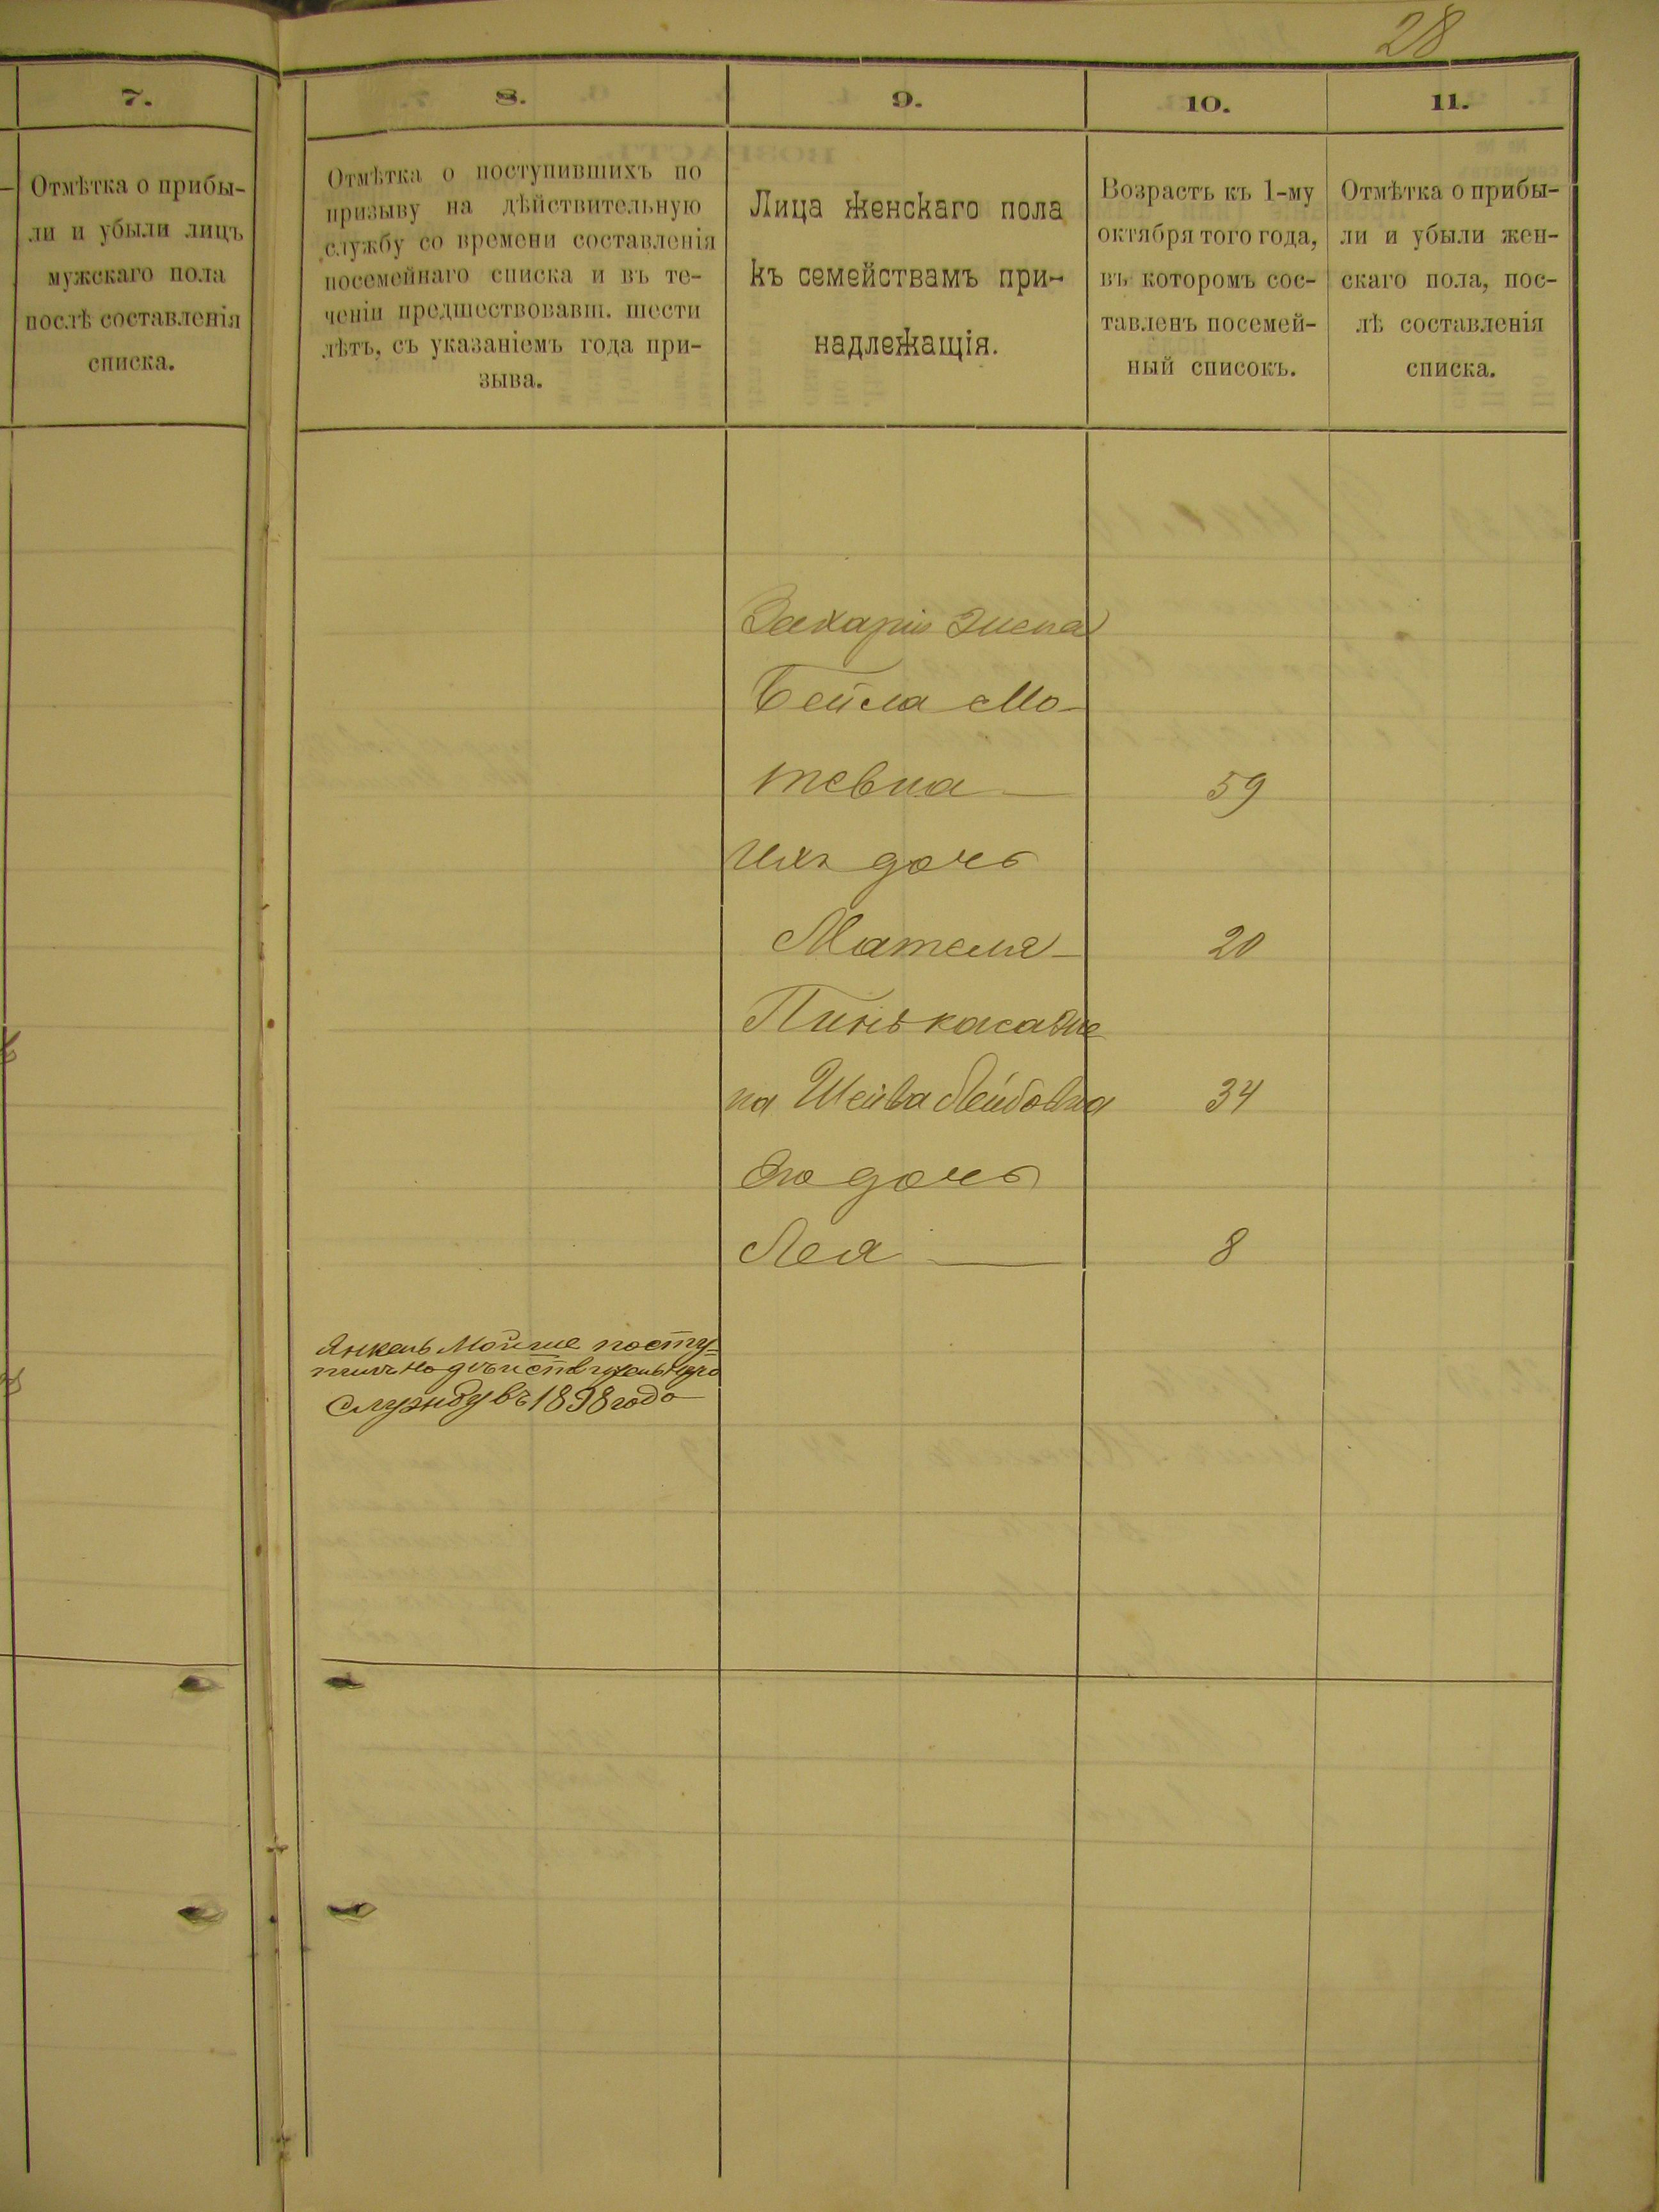 28
7.
8.
9.
10.
11.
Отмѣтка о прибы-
ли и убыли лицъ
мужскаго пола
послѣ составленія
списка.
Отмѣтка о поступившихъ по
призыву на дѣйствительную
службу со времени составленія
посемейнаго списка и въ те-
ченіи предшествовавш. шести
лѣтъ, съ указаніемъ года при-
зыва.
Лица женскаго пола
къ семействамъ при-
надлежащія.
Возрастъ къ 1-му
октября того года,
въ которомъ сос-
тавленъ посемей-
ный списокъ.
Отмѣтка о прибы-
ли и убыли жен-
скаго пола, пос-
лѣ составленія
списка.
Захарія жена
Бейла Мо-
тевна 59
Ихъ дочь
Мателя 20
Пинькаса же
на Шейва Лейбовна 34
Его дочь
Лея 8
Янкель Мойше посту-
пилъ на дѣйствительную
службу въ 1898 году